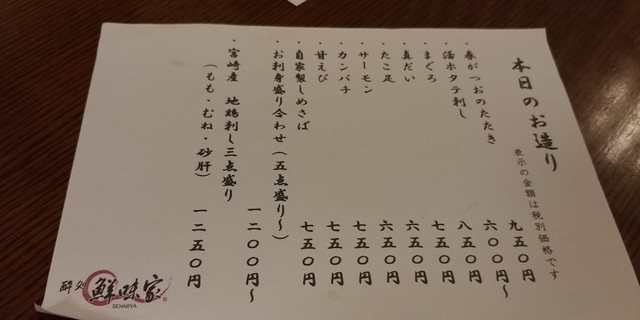 本日のお造り
表示の金額は税別価格です
・春がつおのたたき 九五〇円
・活ホタテ刺し 六〇〇円〜
・まぐろ 八五〇円
・真だい 七五〇円
・たこ足 六五〇円
・サーモン 六五〇円
・カンパチ 七五〇円
・甘えび 七五〇円
・自家製しめさば 七五〇円
・お刺身盛り合わせ(五点盛り〜) 一二〇〇円〜
・宮崎産 地鶏刺し三点盛り
(もも・むね・砂肝) 一二五〇円
酔処 鮮味家
SENMIYA